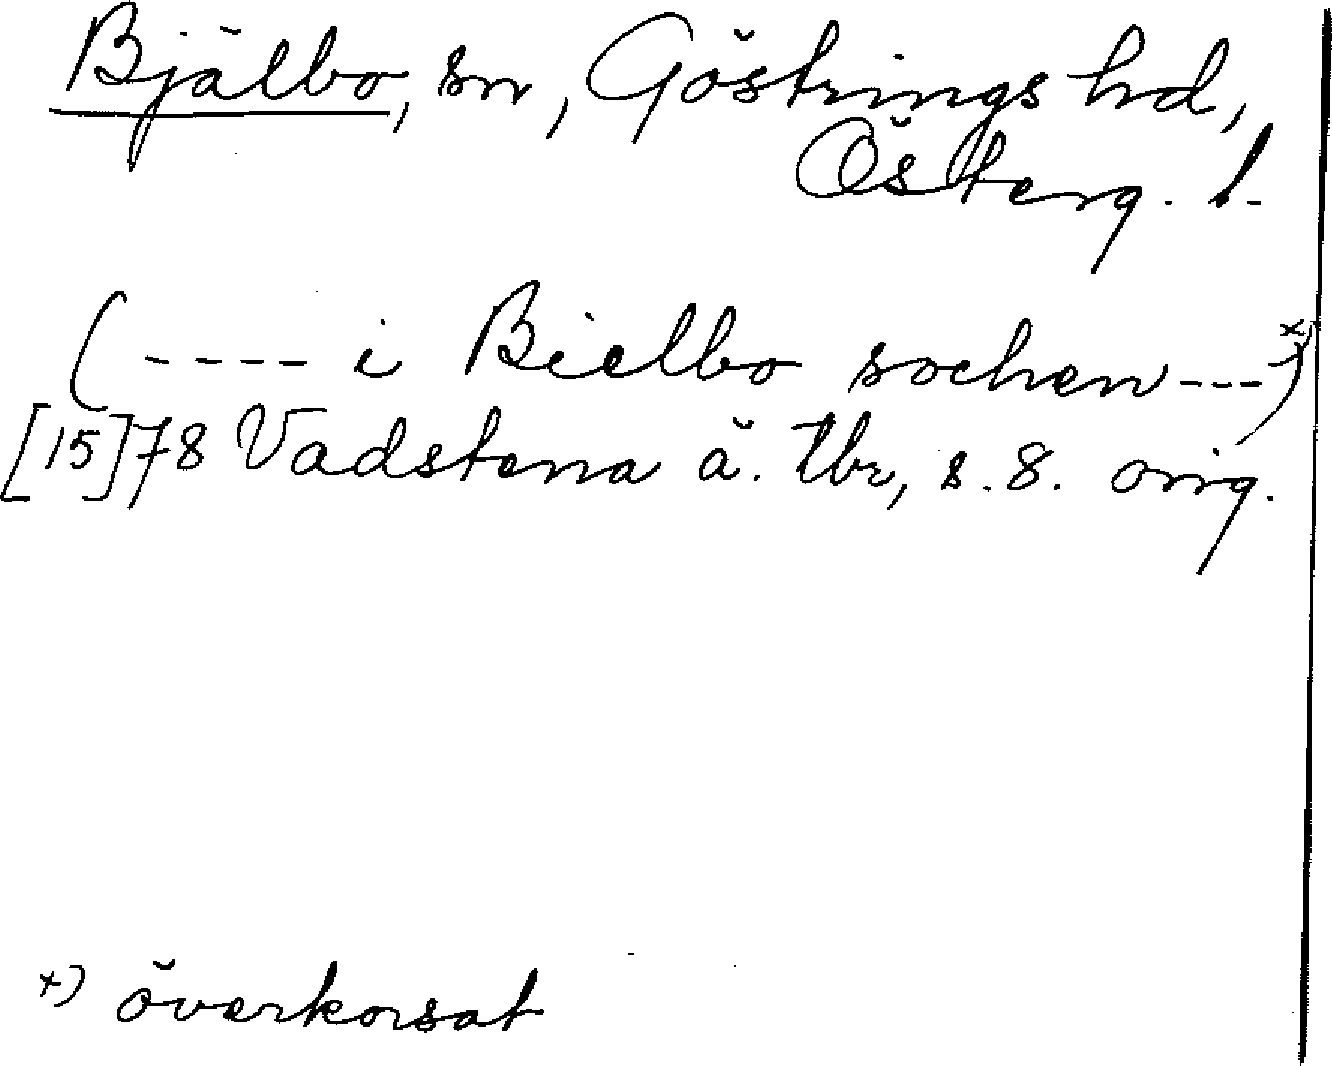 Bjälbo, sn, Göstrings hd,
Österg. l.
(---- i Bielbo sochen ---)x)
[15]78 Vadstena ä. tbr, s. 8. orig.
x) överkorsat